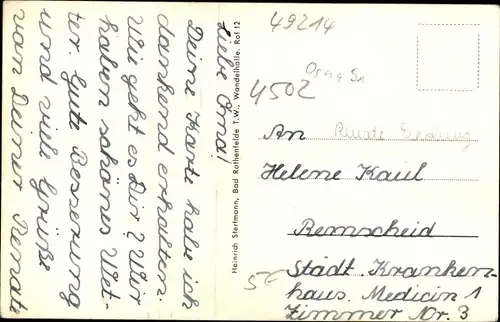 Liebe Oma!
Deine Karte habe ich
dankend erhalten.
Wie geht es Dir? Wir
haben schönes Wet-
ter. Gute Besserung
und viele Grüße
von Deiner Renate
Heinrich Stertmann, Bad Rothenfelde T.W., Wandelhalle. Ruf 12
49214
4502
An
Renate
Helene Kaul
Remscheid
Städt. Kranken-
haus. Medicin 1
Zimmer Nr. 3
5€